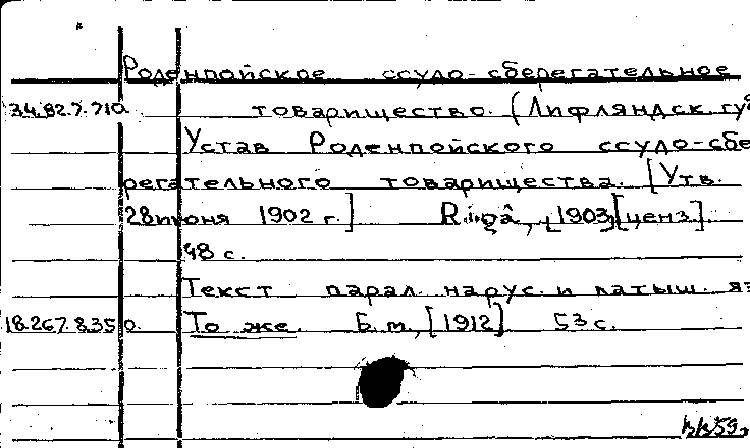 Роденпойское ссудо-сберегательное
34.82.7.710. товарищество. (Лифляндск. губ
Устав Роденпойского ссудо-сбе
регательного товарищества. [Утв.
28 июня 1902 г.] Rīgā, [1903] [ценз].
48 с.
Текст парал. на рус. и латыш. яз
18.267.8.35 То же. Б.м., [1912] 53 с.